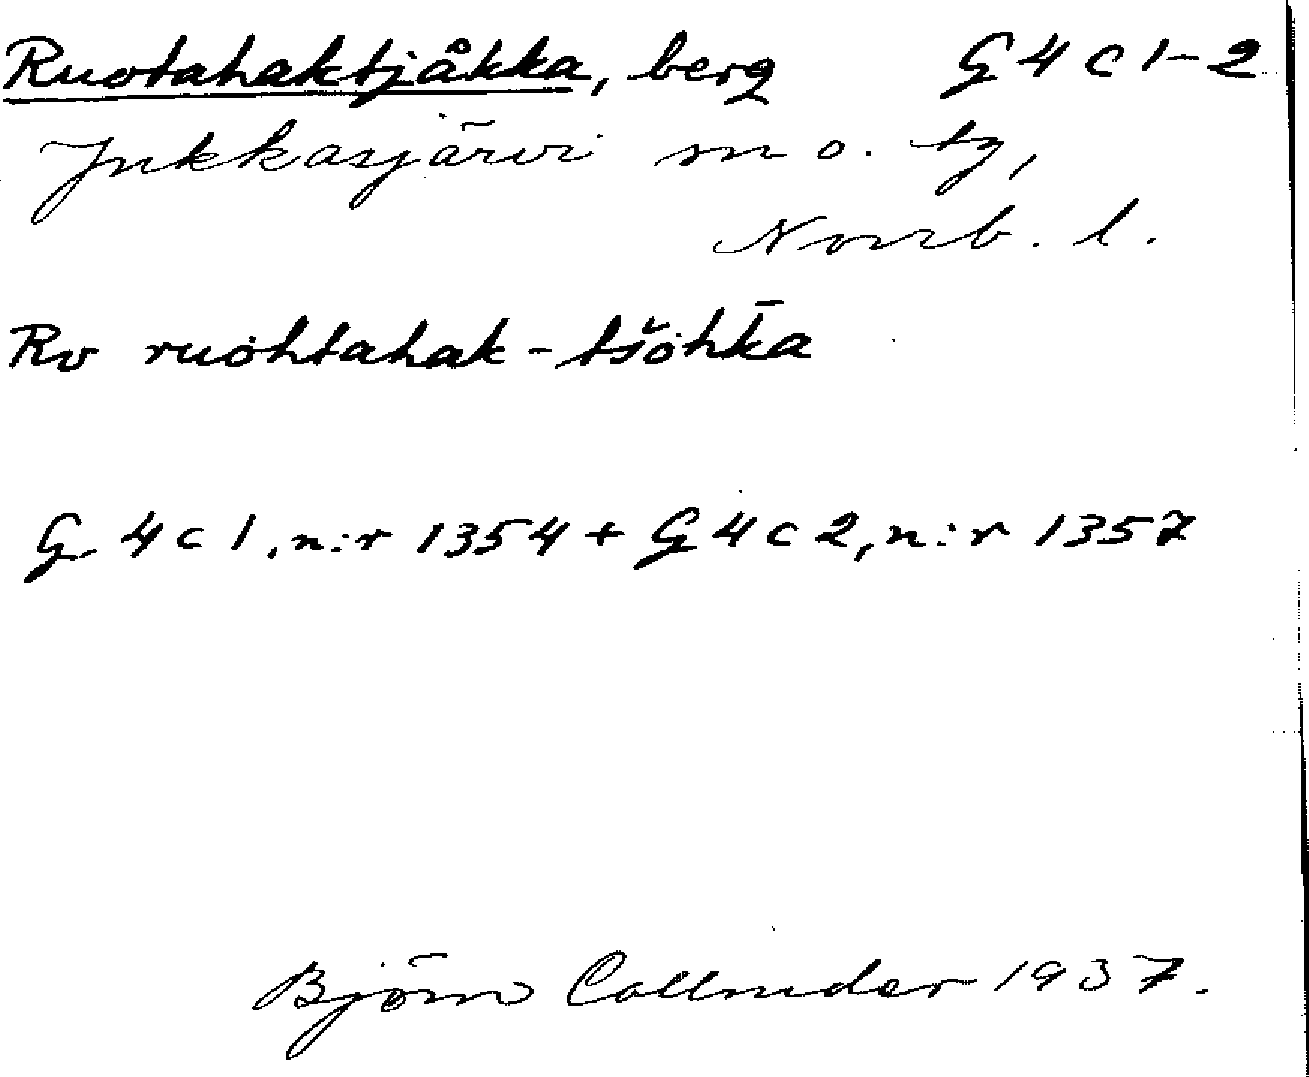 Ruotahaktjåkka, berg G4c1-2
Jukkasjärvi sn o. tg,
Norrb. l.
Rv ruohtahak-tšohk̄a
G4c1, n:r 1354 + G4c2, n:r 1357
Björn Collinder 1937.